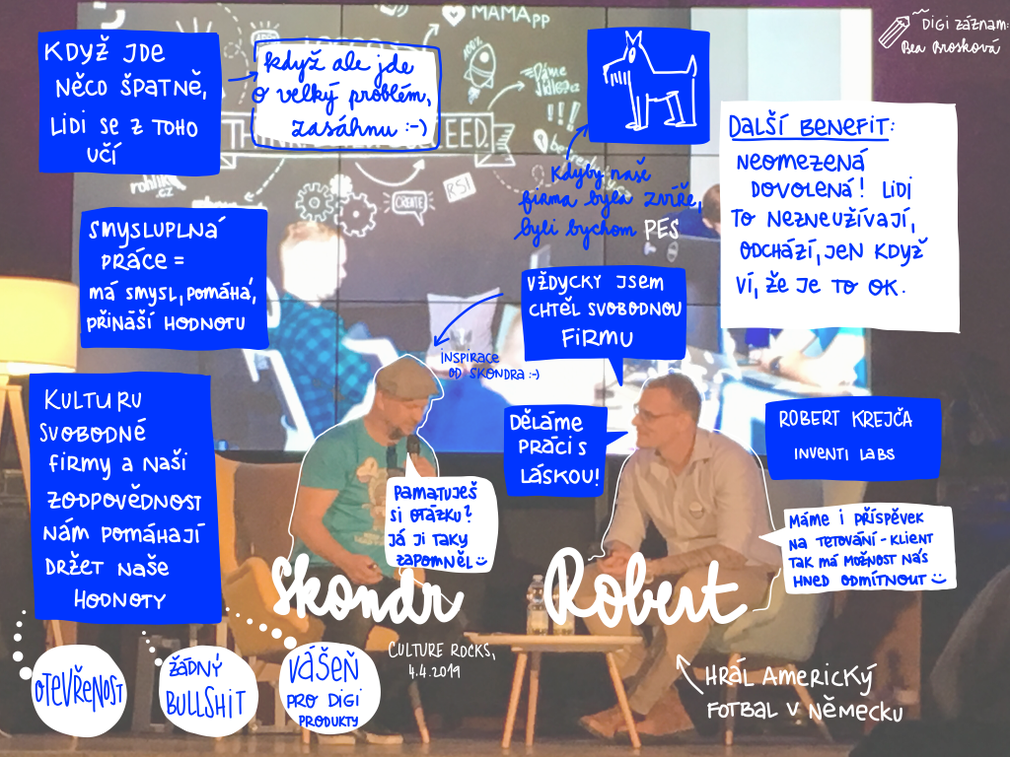 MAMApp
Digi záznam:
Bea Broskova
KDYŽ JDE
NĚCO ŠPATNĚ,
LIDI SE Z TOHO
UČÍ
když ale jde
o velký problém,
zasáhnu :-)
THINK
EED.
Dáme
jídlo.cz
!!!
rohlik
.cz
CREATE
RSI
Kdyby naše
firma byla zvíře,
byli bychom PES
DALŠÍ BENEFIT:
NEOMEZENÁ
DOVOLENÁ! LIDI
TO NEZNEUŽÍVAJÍ,
ODCHÁZÍ, JEN KDYŽ
VÍ, ŽE JE TO OK.
SMYSLUPLNÁ
PRÁCE =
MÁ SMYSL, POMÁHÁ,
PŘINÁŠÍ HODNOTU
VŽDYCKY JSEM
CHTĚL SVOBODNOU
FIRMU
INSPIRACE
OD SKONDRA :-)
KULTURU
SVOBODNÉ
FIRMY A NAŠI
ZODPOVĚDNOST
NÁM POMÁHAJÍ
DRŽET NAŠE
HODNOTY
DĚLÁME
PRÁCI S
LÁSKOU!
ROBERT KREJČA
INVENTI LABS
PAMATUJEŠ
SI OTÁZKU?
JÁ JI TAKY
ZAPOMNĚL
MÁME I PŘÍSPĚVEK
NA TETOVÁNÍ - KLIENT
TAK MÁ MOŽNOST NÁS
HNED ODMÍTNOUT
Skondr
Robert
CULTURE ROCKS,
4.4.2019
OTEVŘENOST
ŽÁDNÝ
BULLSHIT
VÁŠEŇ
PRO DIGI
PRODUKTY
HRÁL AMERICKÝ
FOTBAL V NĚMECKU